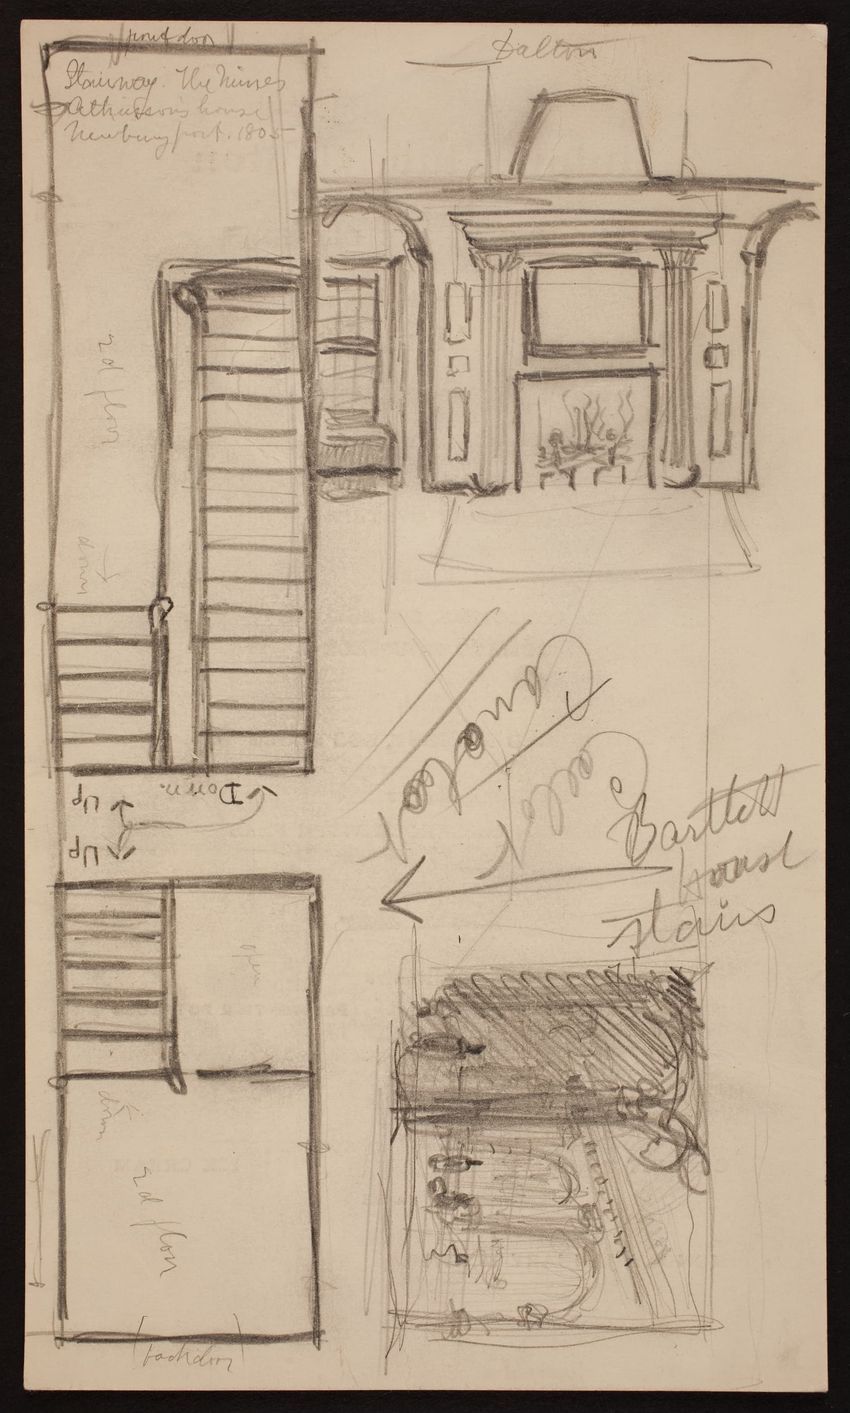 front door
Dalton
Stairway. The Misses
Atkinson's house
Newburyport. 1805
2d floor
down
Down.
Up
Up
Bartlett
house
stairs
open
down
2d floor
(back door)